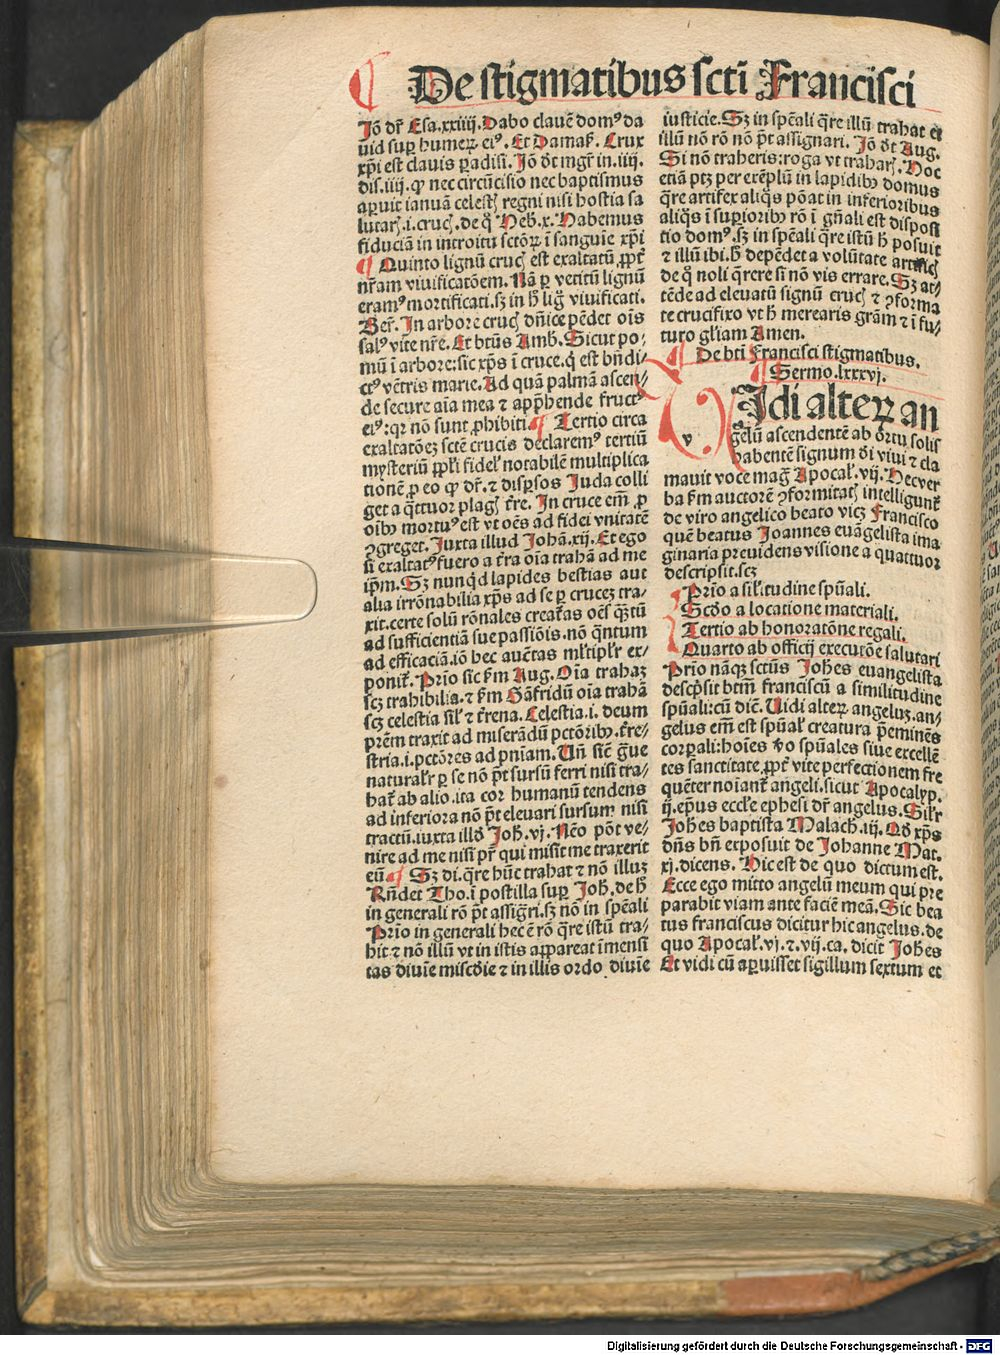 De stigmatibus scti Francisci
Iõ dr̃ Esa.xxiiij. Dabo clauẽ domꝰ da
uid suꝑ humerꝝ eiꝰ. Et Damaſ. Crux
xp̃i est clauis ꝑadisi. Iõ dt mgr̃ in.iiij.
dis.iiij. ꝙ nec circũcisio nec baptismus
aꝑuit ianuã celestꝭ regni nisi hostia sa
lutarꝭ.i.crucꝭ. de q̃ Heb̃.x. Habemus
fiduciã in introitũ sctõꝝ ĩ sanguĩe xp̃i
Quinto lignũ crucꝭ est exaltatũ ꝓpt̃
nr̃am viuificatõem. Nã ꝑ vetitũ lignũ
eramꝰ mortificati. sꝫ in h̃ lig̃ viuificati.
Ber̃. In arbore crucꝭ dñice pẽdet oĩs
salꝰ vite nr̃e. Et btũs Amb̃. Sicut po-
mũ ĩ arbore: sic xp̃s ĩ cruce. q̇ est bñdi-
ctꝰ vẽtris marie. Ad quã palmã ascen-
de secure aĩa mea ⁊ app̃hende fructꝰ
eiꝰ: qꝛ nõ sunt ꝓhibiti. Tertio circa
exaltatõeꝫ sctẽ crucis declaremꝰ tertiũ
mysteriũ ꝓp̃li fidel̃ notabilẽ multiplica
tionẽ ꝑ eo ꝙ dr̃. ⁊ disꝑsos Iuda colli
get a q̃ttuor plagꝭ t̃re. In cruce em̃ ꝑ
oĩbꝫ mortuꝰ est vt oẽs ad fidei vnitatẽ
ꝯgreget. Iuxta illud Johã.xij. Et ego
si exaltatꝰ fuero a t̃ra oĩa trahã ad me
ip̃m. Sꝫ nunq̇d lapides bestias aut
alia irrõnabilia xp̃s ad se ꝑ cruceꝫ tra-
xit. certe solũ rõnales creat̃as oẽs q̃ꝫtũ
ad sufficientiã sue passiõis. nõ q̃ntum
ad efficaciã. iõ hec auc̃tas ml̃tipl̃r ex-
ponit̃. Prio sic ẜm Aug. Oĩa trahaꝫ
scꝫ trahibilia. ⁊ ẜm Gãfridũ oĩa trahã
scꝫ celestia sil̃ ⁊ t̃rena. Celestia.i. deum
pr̃em traxit ad miserãdũ pctõribꝫ. t̃re-
stria.i. pctõres ad pniam. Uñ sic̃ g̃ue
natural̃r ꝑ se nõ p̃t sursũ ferri nisi tra-
hat̃ ab alio. ita cor humanũ tendens
ad inferiora nõ p̃t eleuari sursum nisi
tractũ. iuxta illd̃ Joh̃.vj. Nẽo põt ve-
nire ad me nisi pr̃ qui misit me traxerit
eũ. Sꝫ di. q̃re hũc trahat ⁊ nõ illuꝫ
Rñdet Tho. ĩ postilla suꝑ Joh̃. de h̃
in generali rõ p̃t assig̃ri. sꝫ nõ in sp̃eali
Prio in generali hec ẽ rõ q̃re istũ tra-
hit ⁊ nõ illũ vt in istis appareat ĩmensi
tas diuĩe miscd̃ie ⁊ in illis ordo diuĩe
iusticie. Sꝫ in sp̃eali q̃re illũ trahat et
illũ nõ rõ nõ p̃t assignari. Iõ dt Aug.
Si nõ traheris: roga vt traharꝭ. Hoc
etiã ptꝫ per exẽplũ in lapidibꝫ domus
q̃re artifex aliq̃s põat in inferioribus
aliq̃s ĩ suꝑioribꝫ rõ ĩ gñali est disposi
tio domꝰ. sꝫ in sp̃eali q̃re istũ h̃ posuit
⁊ illũ ibi. h̃ depẽdet a volũtate artificꝭ
de q̃ noli q̃rere si nõ vis errare. Sꝫ at-
tẽde ad eleuatũ signũ crucꝭ ⁊ ꝯforma
te crucifixo vt h̃ merearis gr̃am ⁊ ĩ fu-
turo gl̃iam Amen.
De bti Francisci stigmatibus.
Sermo.lxxxvj.
v
Idi alteꝝ an
gelũ ascendentẽ ab ortu solis
habentẽ signum dei viui ⁊ cla
mauit voce mag̃ Apocal̃.vij. Hec ver
ba ẜm auctorẽ ꝯformitatꝭ intelligunt̃
de viro angelico beato vicꝫ Francisco
quẽ beatus Joannes euãgelista ima
ginaria preuidens visione a quattuor
descripsit. scꝫ
Prio a sil̃itudine sp̃uali.
Scd̃o a locatione materiali.
Tertio ab honoratõne regali.
Quarto ab officij executõe salutari
Prio nãqꝫ sctũs Joh̃es euangelista
descp̃sit btm̃ franciscũ a similitudine
sp̃uali: cũ dic̃. Uidi alteꝝ angeluꝫ. an-
gelus em̃ est sp̃ual̃ creatura p̃eminẽs
corꝑali: hoĩes v̊o sp̃uales siue excellẽ
tes sanctitate. ꝓpt̃ vite perfectionem fre
quẽter noĩant̃ angeli. sicut Apocalyp.
ij. ep̃us eccl̃e ephesi dr̃ angelus. Sil̃r
Joh̃es baptista Malach̃.iij. Qd̃ xp̃s
dñs bñ exposuit de Johanne Mat.
xj. dicens. Hic est de quo dictum est.
Ecce ego mitto angelũ meum qui pre
parabit viam ante faciẽ meã. Sic bea
tus franciscus dicitur hic angelus. de
quo Apocal̃.vj. ⁊.vij.ca. dicit Joh̃es
Et vidi cũ aꝑuisset sigillum sextum et
Digitalisierung gefördert durch die Deutsche Forschungsgemeinschaft - DFG